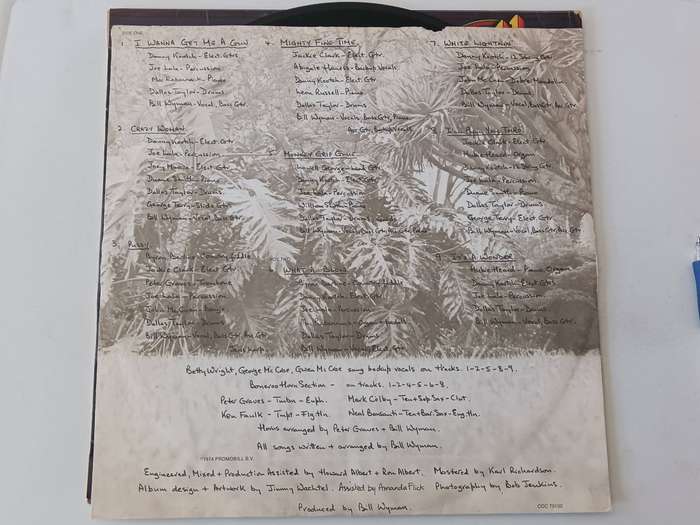 SIDE ONE
1. I WANNA GET ME A GUN
Danny Kortch - Elect. Gtrs
Joe Lala - Percussion
Mac Rebennack - Piano
Dallas Taylor - Drums
Bill Wyman - Vocal, Bass Gtr
2. CRAZY WOMAN
Danny Kortch - Elect. Gtr
Joe Lala - Percussion
Joey Murcia - Elect. Gtr
Duane Smith - Piano
Dallas Taylor - Drums
George Terry - Slide Gtr
Bill Wyman - Vocal, Bass Gtr
3. PUSSY
Byron Berline - Country Fiddle
Jackie Clark - Elect Gtr
Peter Graves - Trombone
Joe Lala - Percussion
John McEuen - Banjo
Dallas Taylor - Drums
Bill Wyman - Vocal, Bass Gtr, Acc Gtr
Jews harp
4. MIGHTY FINE TIME
Jackie Clark - Elect. Gtr
Abigale Haness - Backup Vocals
Danny Kortch - Elect. Gtr
Leon Russell - Piano
Dallas Taylor - Drums
Bill Wyman - Vocals, Bass Gtr, Piano
Acc Gtr, Backup Vocals
5. MONKEY GRIP GLUE
Lowell George - Lead Gtr
Danny Kortch - Elect. Gtr
Joe Lala - Percussion
William Smith - Piano
Dallas Taylor - Drums
Bill Wyman - Vocals, Bass Gtr, Acc Gtr
SIDE TWO
6. WHAT A BLOW
Byron Berline - Country Fiddle
Danny Kortch - Elect. Gtr
Joe Lala - Percussion
Mac Rebennack - Organ
Dallas Taylor - Drums
Bill Wyman - Vocal, Bass Gtr
7. WHITE LIGHTNIN'
Danny Kortch - 12 String Gtr
Joe Lala - Percussion
John McEuen - Dobro, Mandolin
Dallas Taylor - Drums
Bill Wyman - Vocal, Bass Gtr, Acc Gtr
8. I'LL PULL YOU THRO'
Jackie Clark - Elect. Gtr
Hubie Heard - Organ
Danny Kortch - Gtr
Joe Lala - Percussion
Duane Smith - Piano
Dallas Taylor - Drums
George Terry - Elect. Gtr
Bill Wyman - Vocal, Bass Gtr, Acc Gtr
9. IT'S A WONDER
Hubie Heard - Piano, Organ
Danny Kortch - Elect. Gtr
Joe Lala - Percussion
Dallas Taylor - Drums
Bill Wyman - Vocal, Bass Gtr.
Betty Wright, George McCrae, Gwen McCrae sang backup vocals on tracks. 1-2-5-8-9.
Bonaroo Horn Section - on tracks. 1-2-4-5-6-8.
Peter Graves - Tmbn - Euph. Mark Colby - Ten + Sop Sax - Clat.
Ken Faulk - Tmpt - Flg. Hn. Neal Bonsanti - Ten + Bar. Sax - Eng. Hn.
Horns arranged by Peter Graves + Bill Wyman.
All songs written + arranged by Bill Wyman.
℗1974 PROMOBILL B.V.
Engineered, Mixed + Production Assisted by Howard Albert + Ron Albert. Mastered by Karl Richardson.
Album design + Artwork by Jimmy Wachtel. Assisted by Amanda Flick Photography by Bob Jenkins.
Produced by Bill Wyman.
COC 79100